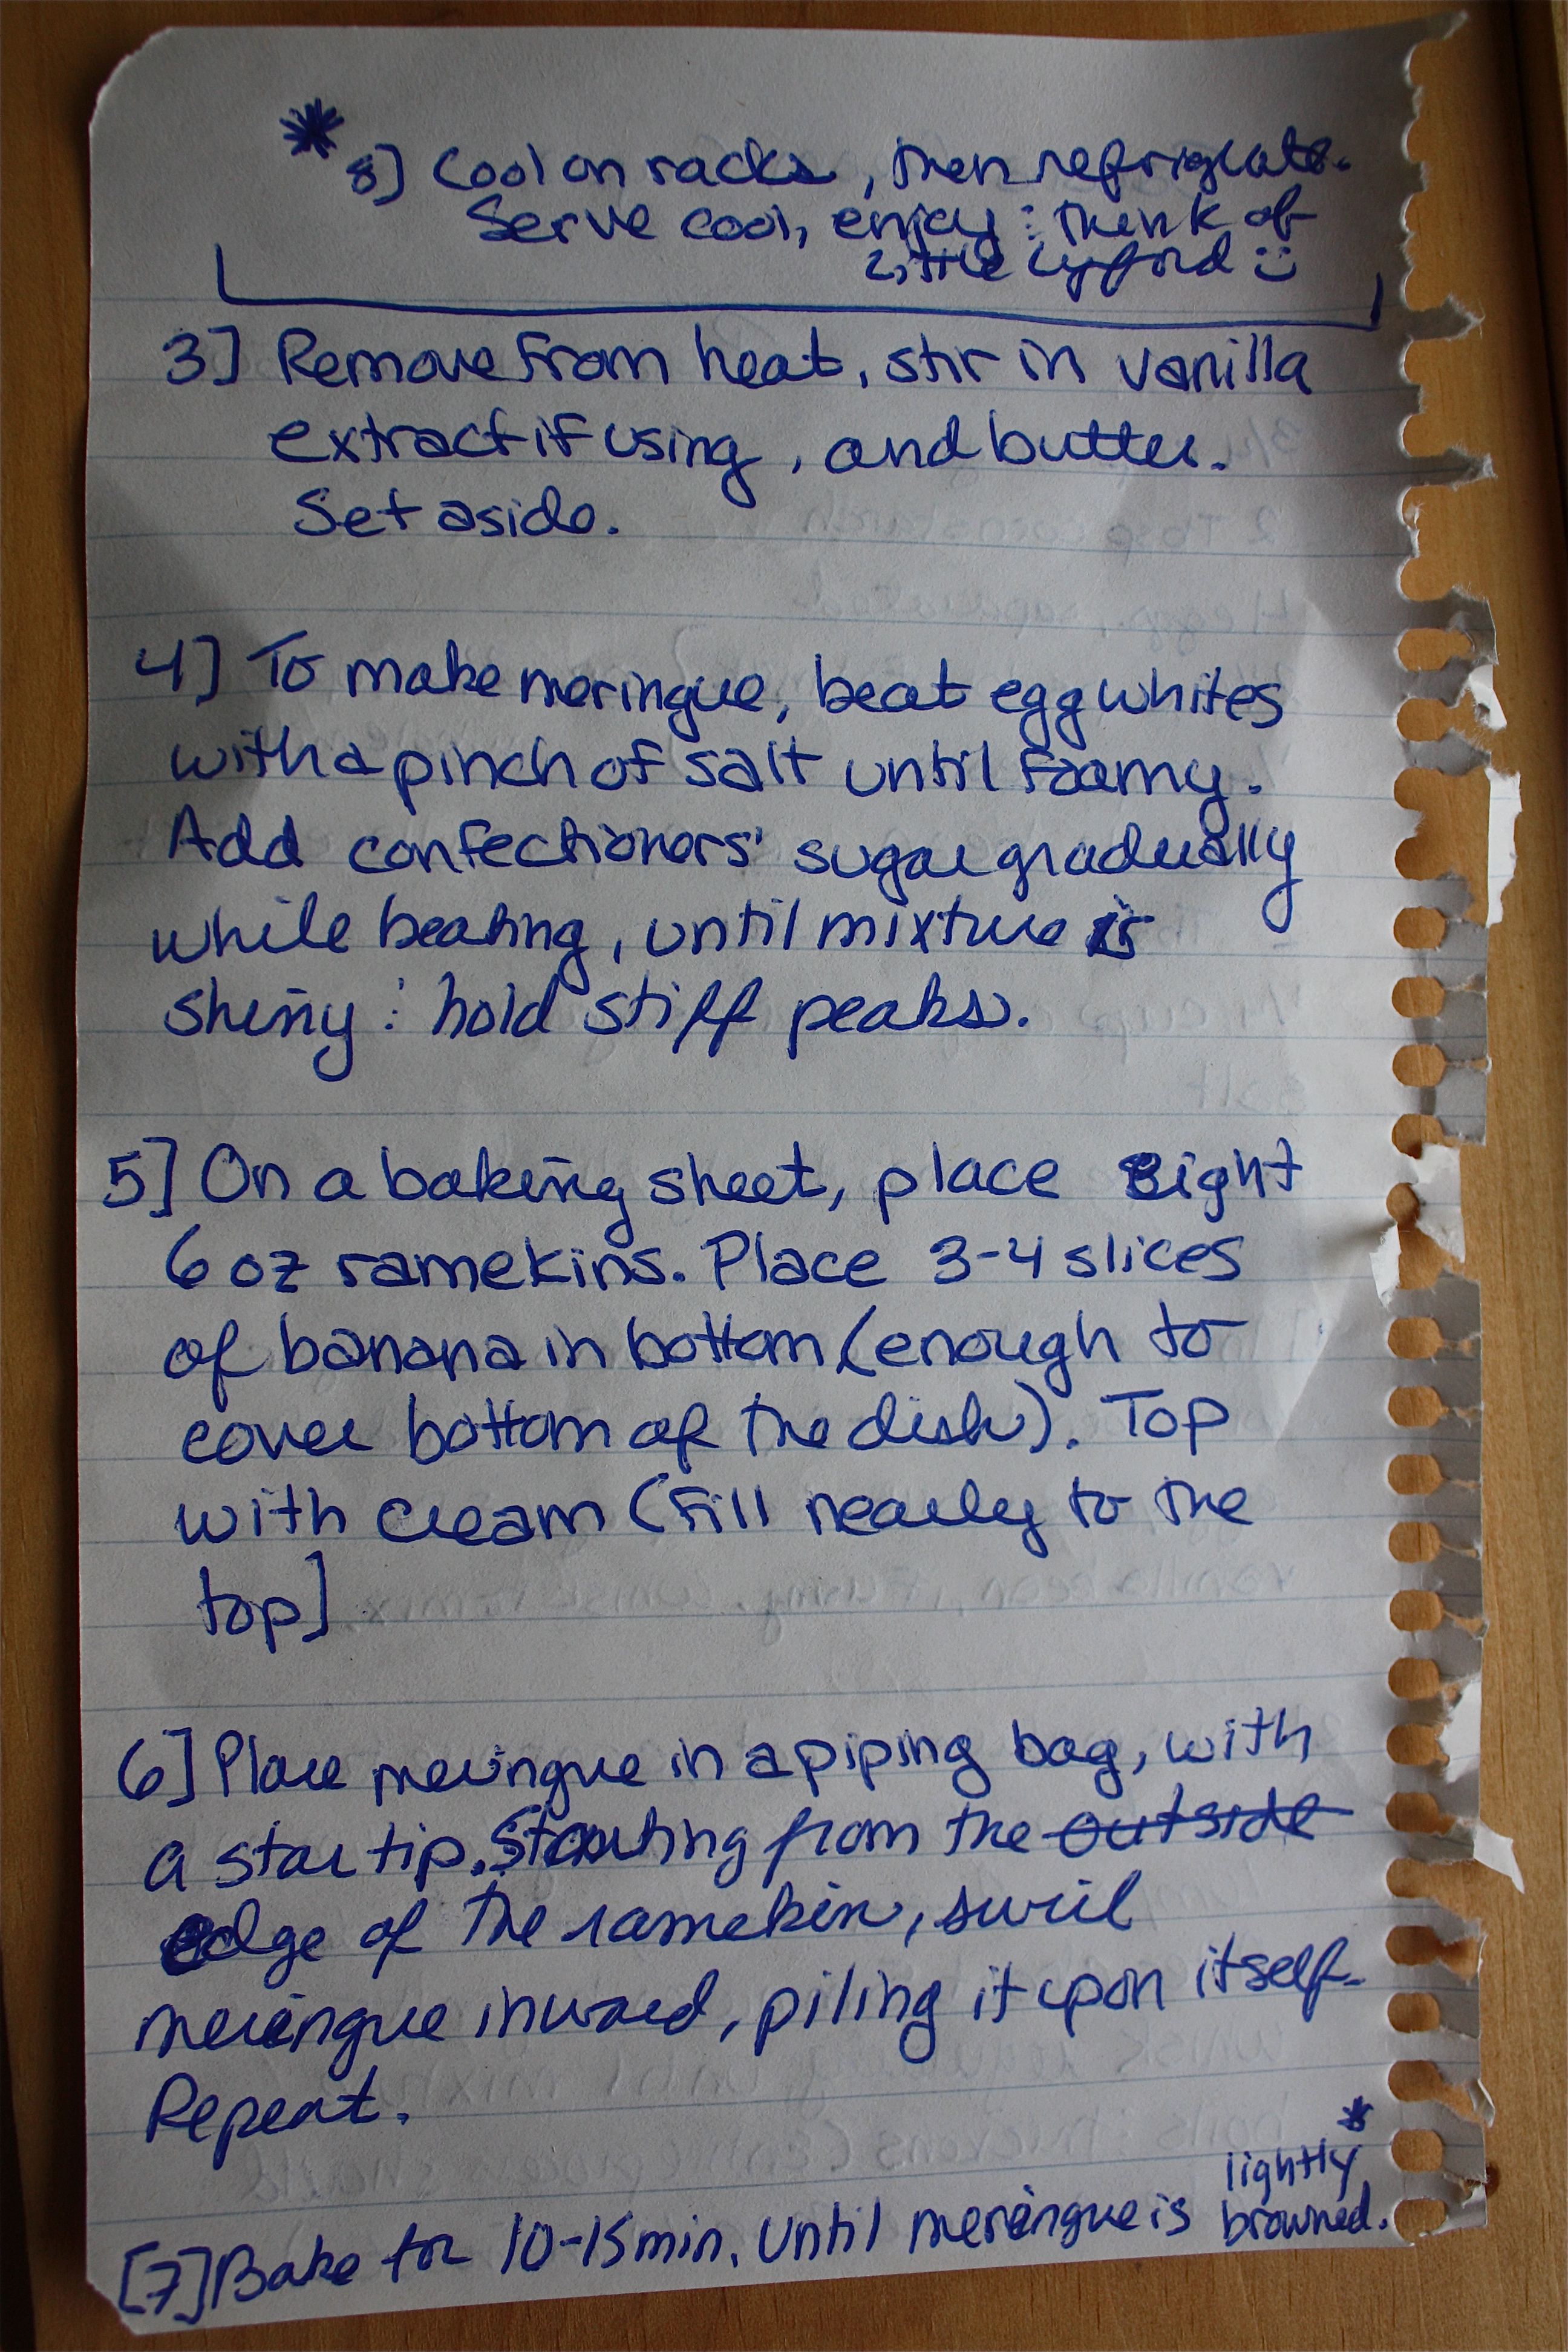 * 8] Cool on racks, then refrigerate.
Serve cool, enjoy : think of
Little Lyford :)
3] Remove from heat, stir in vanilla
extract if using, and butter.
Set aside.
4] To make meringue, beat egg whites
with a pinch of salt until foamy.
Add confectioners' sugar gradually
while beating, until mixture is
shiny : hold stiff peaks.
5] On a baking sheet, place eight
6 oz ramekins. Place 3-4 slices
of banana in bottom (enough to
cover bottom of the dish). Top
with cream (fill nearly to the
top]
6] Place meringue in a piping bag, with
a star tip. Starting from the outside
edge of the ramekin, swirl
meringue inward, piling it upon itself.
Repeat.
lightly *
[7] Bake for 10-15 min. until meringue is browned.